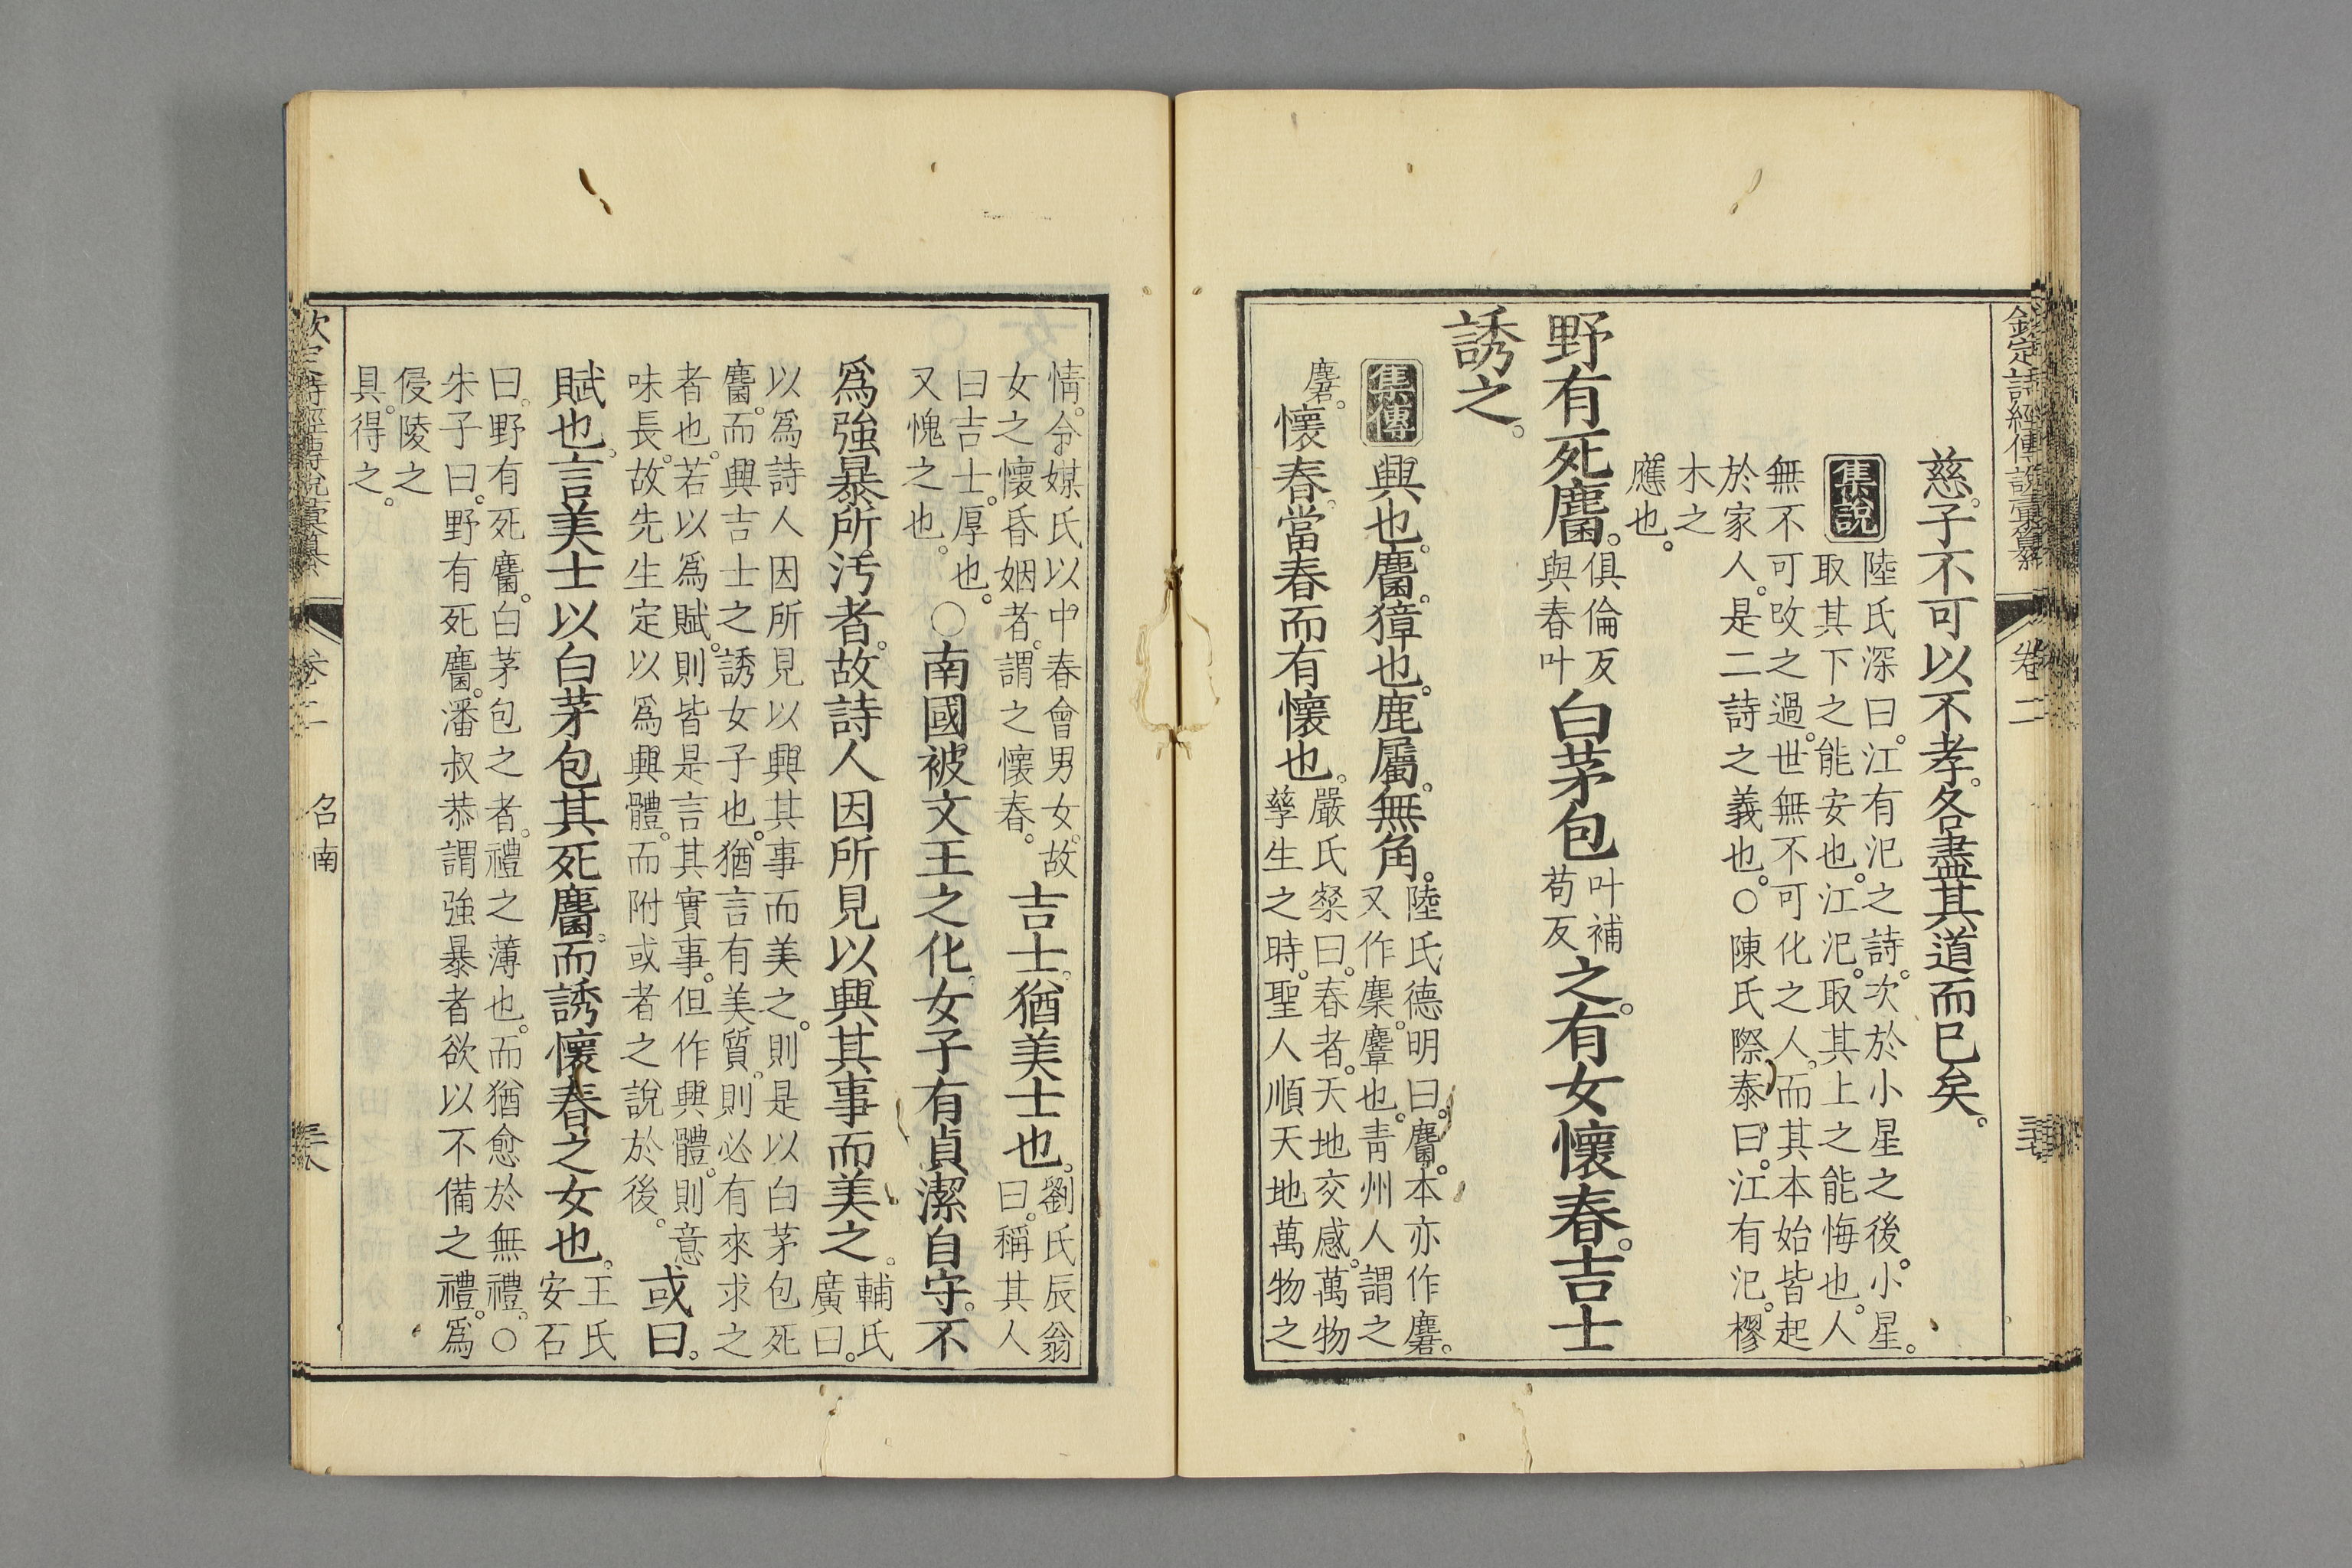 欽定詩經傳說彙纂 卷二
慈。子不可以不孝。各盡其道而已矣。
集說
陸氏深曰。江有汜之詩。次於小星之後。小星。
取其下之能安也。江汜。取其上之能悔也。人
無不可攺之過。世無不可化之人。而其本始皆起
於家人。是二詩之義也。○陳氏際泰曰。江有汜。樛
木之
應也。
野有死麕。
俱倫反
與春叶
白茅包
叶補
茍反
之。有女懷春。吉士
誘之。
集傳
興也。麕。獐也。鹿屬。無角。
陸氏德明曰。麕。本亦作麏。
又作麇。麞也。青州人謂之
麏。
懷春。當春而有懷也。
嚴氏粲曰。春者。天地交感。萬物
孳生之時。聖人順天地萬物之
情。令媒氏以中春會男女。故
女之懷昏姻者。謂之懷春。
吉士。猶美士也。
劉氏辰翁
曰。稱其人
曰吉士。厚也。
又愧之也。
○南國被文王之化。女子有貞潔自守。不
爲強暴所汚者。故詩人因所見以興其事而美之。
輔氏
廣曰。
以爲詩人因所見以興其事而美之。則是以白茅包死
麕。而興吉士之誘女子也。猶言有美質。則必有來求之
者也。若以爲賦。則皆是言其實事。但作興體。則意
味長。故先生定以爲興體。而附或者之說於後。
或曰。
賦也。言美士以白茅包其死麕。而誘懷春之女也。
王氏
安石
曰。野有死麕。白茅包之者。禮之薄也。而猶愈於無禮。○
朱子曰。野有死麕。潘叔恭謂強暴者欲以不備之禮。爲
侵陵之
具。得之。
欽定詩經傳說彙纂 卷二 召南